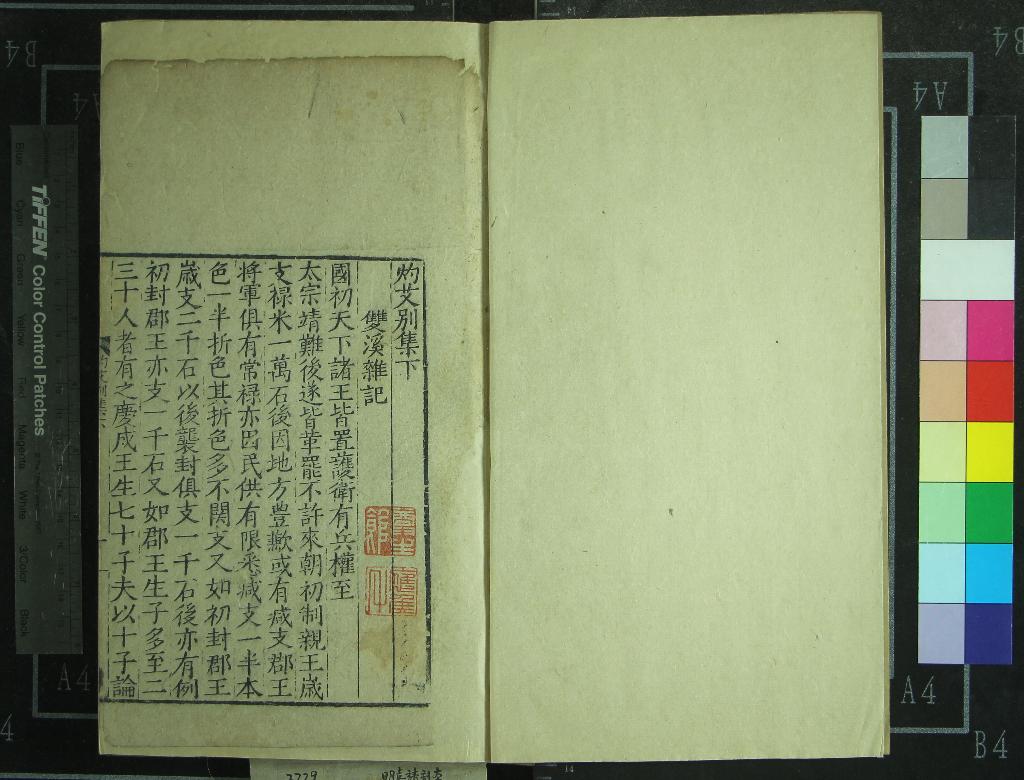 灼艾別集下
雙溪雜記
國初天下諸王皆置護衛有兵權至
太宗靖難後遂皆革罷不許來朝初制親王歲
支祿米一萬石後因地方豊歉或有减支郡王
將軍俱有常祿亦因民供有限悉减支一半本
色一半折色其折色多不関支又如初封郡王
歲支二千石以後襲封俱支一千石後亦有例
初封郡王亦支一千石又如郡王生子多至二
三十人者有之慶成王生七十子夫以十子論
TIFFEN Color Control Patches
Blue
Cyan
Green
Yellow
Red
Magenta
White
3/Color
Black
B4
A4
B4
A4
A4
A4
B4